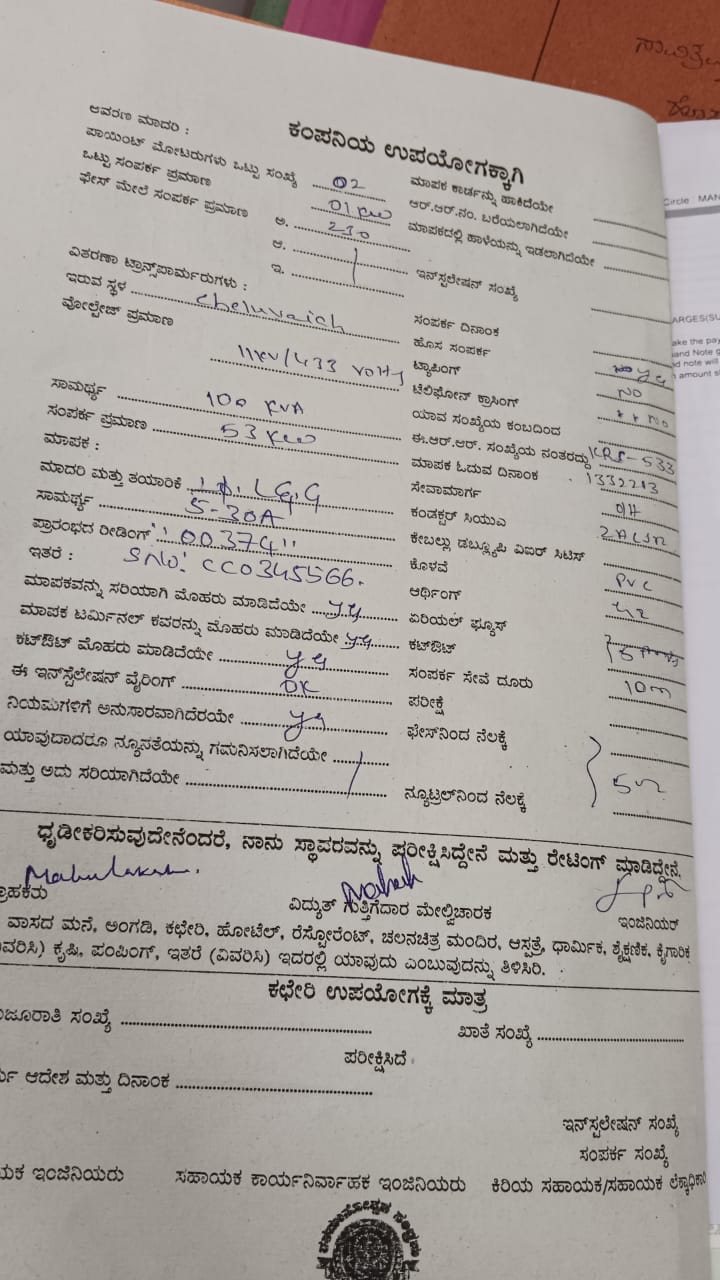 ಕಂಪನಿಯ ಉಪಯೋಗಕ್ಕಾಗಿ
ಆವರಣ ಮಾದರಿ :
ಪಾಯಿಂಟ್ ಮೋಟರುಗಳು ಒಟ್ಟು ಸಂಖ್ಯೆ 02
ಒಟ್ಟು ಸಂಪರ್ಕ ಪ್ರಮಾಣ 01 KW
ಫೇಸ್ ಮೇಲೆ ಸಂಪರ್ಕ ಪ್ರಮಾಣ ಅ. 230
ಆ.
ಇ.
ವಿತರಣಾ ಟ್ರಾನ್ಸ್‌ಪಾರ್ಮರುಗಳು :
ಇರುವ ಸ್ಥಳ Cheluvaiah
ವೋಲ್ಟೇಜ್ ಪ್ರಮಾಣ 11KV/433 Volts
ಸಾಮರ್ಥ್ಯ 100 KVA
ಸಂಪರ್ಕ ಪ್ರಮಾಣ 53 KW
ಮಾಪಕ :
ಮಾದರಿ ಮತ್ತು ತಯಾರಿಕೆ L&G
ಸಾಮರ್ಥ್ಯ 5-30A
ಪ್ರಾರಂಭದ ರೀಡಿಂಗ್ "00374"
ಇತರೆ : SNo: CC0345566.
ಮಾಪಕವನ್ನು ಸರಿಯಾಗಿ ಮೊಹರು ಮಾಡಿದೆಯೇ yes
ಮಾಪಕ ಟರ್ಮಿನಲ್ ಕವರನ್ನು ಮೊಹರು ಮಾಡಿದೆಯೇ yes
ಕಟ್‌ಔಟ್ ಮೊಹರು ಮಾಡಿದೆಯೇ yes
ಈ ಇನ್‌ಸ್ಟಲೇಷನ್ ವೈರಿಂಗ್ OK
ನಿಯಮಗಳಿಗೆ ಅನುಸಾರವಾಗಿದೆರಯೇ yes
ಯಾವುದಾದರೂ ನ್ಯೂನತೆಯನ್ನು ಗಮನಿಸಲಾಗಿದೆಯೇ
ಮತ್ತು ಅದು ಸರಿಯಾಗಿದೆಯೇ
ಮಾಪಕ ಕಾರ್ಡನ್ನು ಹಾಕಿದೆಯೇ
ಆರ್.ಆರ್.ನಂ. ಬರೆಯಲಾಗಿದೆಯೇ
ಮಾಪಕದಲ್ಲಿ ಹಾಳೆಯನ್ನು ಇಡಲಾಗಿದೆಯೇ
ಇನ್‌ಸ್ಟಲೇಷನ್ ಸಂಖ್ಯೆ
ಸಂಪರ್ಕ ದಿನಾಂಕ
ಹೊಸ ಸಂಪರ್ಕ
ಟ್ಯಾಪಿಂಗ್ yes
ಟೆಲಿಫೋನ್ ಕ್ರಾಸಿಂಗ್ NO
ಯಾವ ಸಂಖ್ಯೆಯ ಕಂಬದಿಂದ No
ಈ.ಆರ್.ಆರ್. ಸಂಖ್ಯೆಯ ನಂತರದ್ದು KRS-533
ಮಾಪಕ ಓದುವ ದಿನಾಂಕ 1332213
ಸೇವಾಮಾರ್ಗ OH
ಕಂಡಕ್ಟರ್ ಸಿಯುವಿ
ಕೇಬಲ್ಲು ಡಬ್ಲ್ಯೂಪಿ ವಿಐರ್ ಸಿಟಿಸ್
ಕೊಳವೆ PVC
ಆರ್ಥಿಂಗ್
ಏರಿಯಲ್ ಫ್ಯೂಸ್
ಕಟ್‌ಔಟ್
ಸಂಪರ್ಕ ಸೇವೆ ದೂರು 10m
ಪರೀಕ್ಷೆ
ಫೇಸ್‌ನಿಂದ ನೆಲಕ್ಕೆ
ನ್ಯೂಟ್ರಲ್‌ನಿಂದ ನೆಲಕ್ಕೆ 5Ω
ಧೃಡೀಕರಿಸುವುದೇನೆಂದರೆ, ನಾನು ಸ್ಥಾವರವನ್ನು ಪರೀಕ್ಷಿಸಿದ್ದೇನೆ ಮತ್ತು ರೇಟಿಂಗ್ ಮಾಡಿದ್ದೇನೆ.
ವಿದ್ಯುತ್ ಗುತ್ತಿಗೆದಾರ ಮೇಲ್ವಿಚಾರಕ ಇಂಜಿನಿಯರ್
ವಾಸದ ಮನೆ, ಅಂಗಡಿ, ಕಛೇರಿ, ಹೋಟೆಲ್, ರೆಸ್ಟೋರೆಂಟ್, ಚಲನಚಿತ್ರ ಮಂದಿರ, ಆಸ್ಪತ್ರೆ, ಧಾರ್ಮಿಕ, ಶೈಕ್ಷಣಿಕ, ಕೈಗಾರಿಕ
ವಿವರಿಸಿ) ಕೃಷಿ, ಪಂಪಿಂಗ್, ಇತರೆ (ವಿವರಿಸಿ) ಇದರಲ್ಲಿ ಯಾವುದು ಎಂಬುವುದನ್ನು ತಿಳಿಸಿರಿ.
ಕಛೇರಿ ಉಪಯೋಗಕ್ಕೆ ಮಾತ್ರ
ಜೂರಾತಿ ಸಂಖ್ಯೆ ಖಾತೆ ಸಂಖ್ಯೆ
ಪರೀಕ್ಷಿಸಿದೆ
ಆದೇಶ ಮತ್ತು ದಿನಾಂಕ
ಇನ್‌ಸ್ಟಲೇಷನ್ ಸಂಖ್ಯೆ
ಸಂಪರ್ಕ ಸಂಖ್ಯೆ
ಯಕ ಇಂಜಿನಿಯರು ಸಹಾಯಕ ಕಾರ್ಯನಿರ್ವಾಹಕ ಇಂಜಿನಿಯರು ಕಿರಿಯ ಸಹಾಯಕ/ಸಹಾಯಕ ಲೆಕ್ಕಾಧಿಕಾರಿ
Circle : MAN
ARGES(SU
ake the pay
and Note g
d note will
amount s